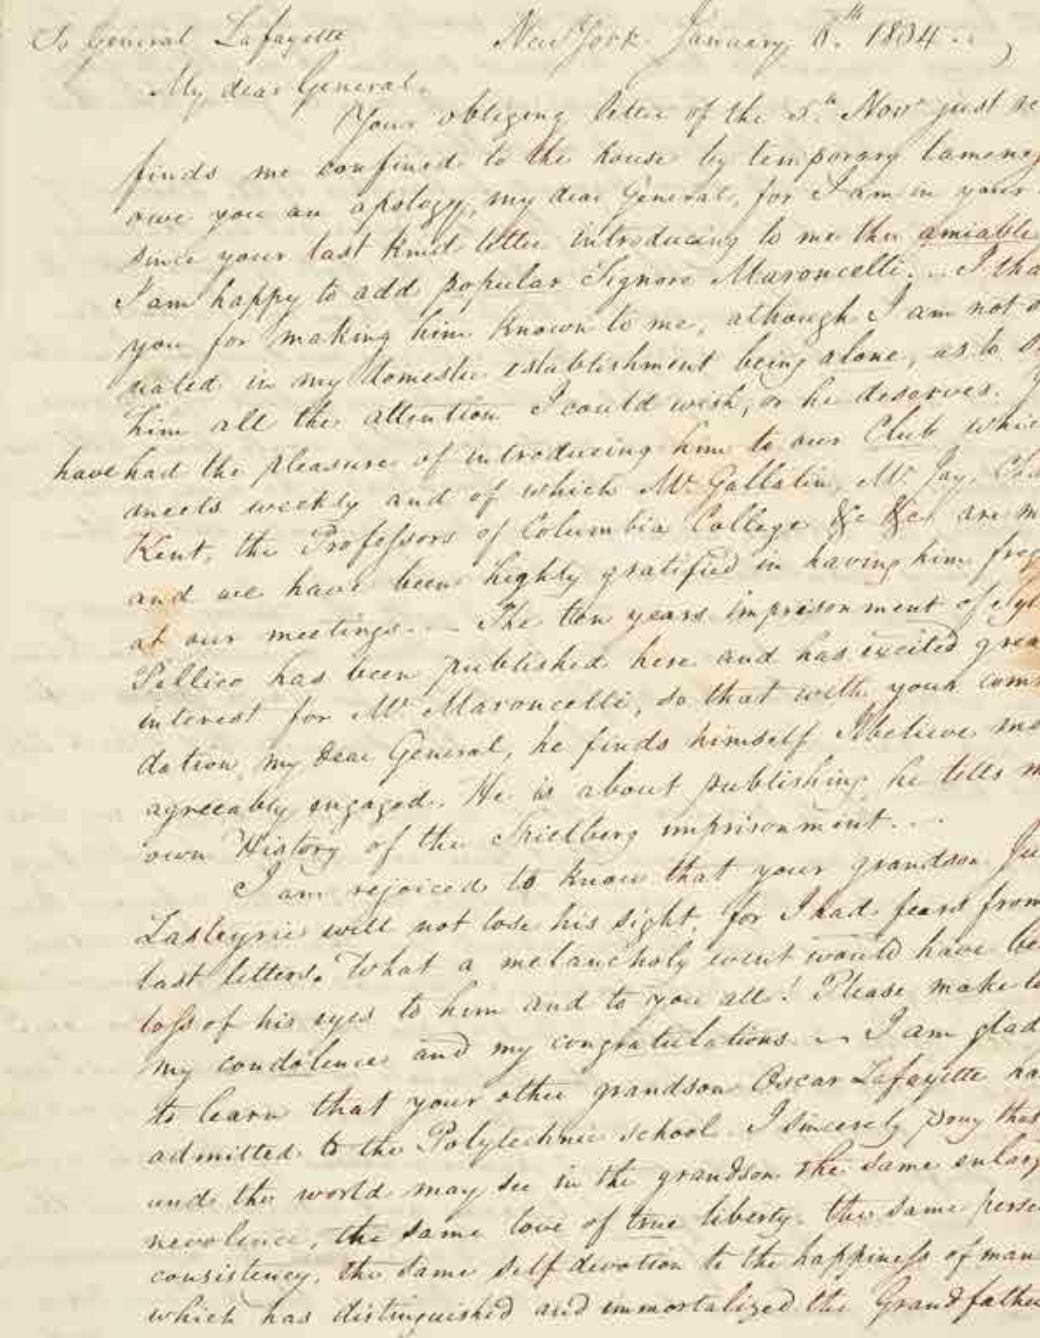 To General Lafayette New York January 6.th 1834..
My dear General.
Your obliging letter of the 5.th Nov.r just re
finds me confined to the house by temporary lameness
owe you an apology, my dear General, for I am in your
since your last kind letter introducing to me the amiable
I am happy to add popular Signore Maroncelli... I tha
you for making him known to me, athough I am not s
uated in my domestic establishment being alone, as to s
him all the attention I could wish, or he deserves. I
have had the pleasure of introducing him to our Club whic
meets weekly and of which Mr Gallatin, Mr Jay, Cha
Kent, the Professors of Columbia College &c &c. are m
and we have been highly gratified in having him freq
at our meetings... The ten years imprisonment of Syl
Pellico has been published here and has excited grea
interest for Mr Maroncelli, so that with your com
dation, my Dear General, he finds himself I believe mo
agreeably engaged. He is about publishing he tells m
own History of the Spielberg imprisonment...
I am rejoiced to know that your grandson Ju
Lasteyrie will not lose his sight, for I had feard from
last letters. What a melancholy event would have be
loss of his eyes to him and to you all! Please make to
my condolence and my congratulations. — I am glad
to learn that your other grandson Oscar Lafayette ha
admitted to the Polytechnic school. I sincerely pray that
and the world may see in the grandson the same enlarg
nevolence, the same love of true liberty. the same perse
consistency. the same self devotion to the happiness of man
which has distinguished and immortalized the Grandfathe